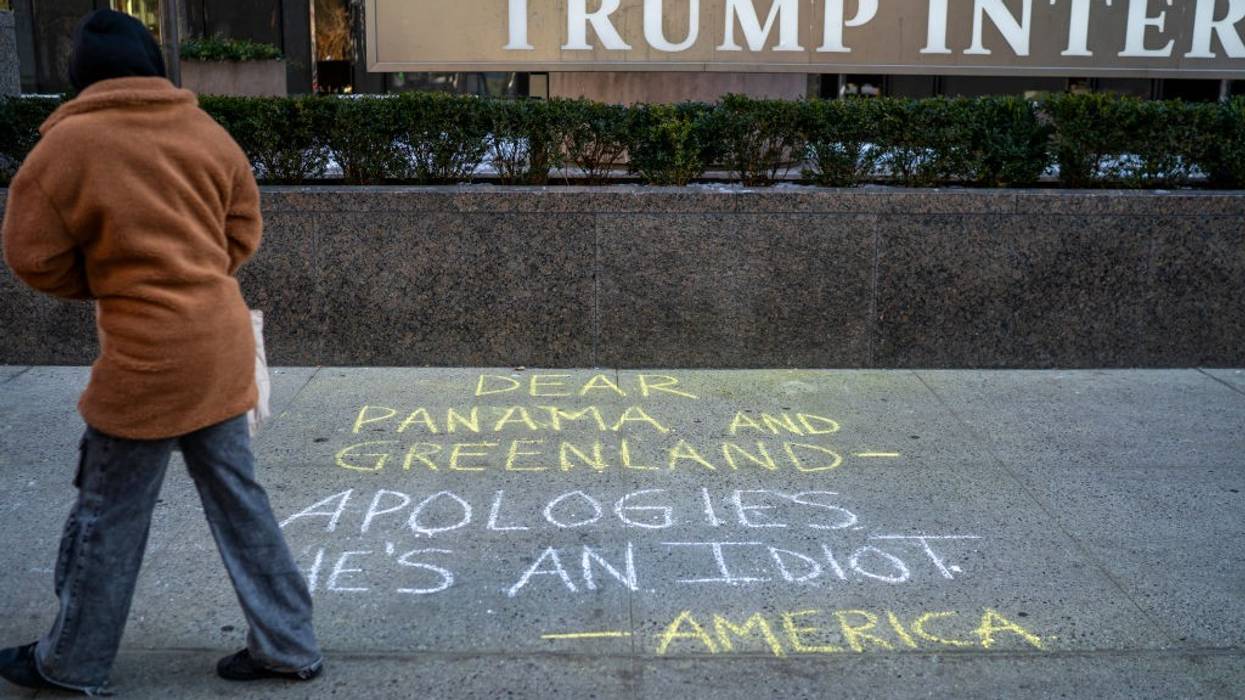 TRUMP INTER
DEAR
PANAMA AND
GREENLAND—
APOLOGIES
HE'S AN IDIOT
— AMERICA